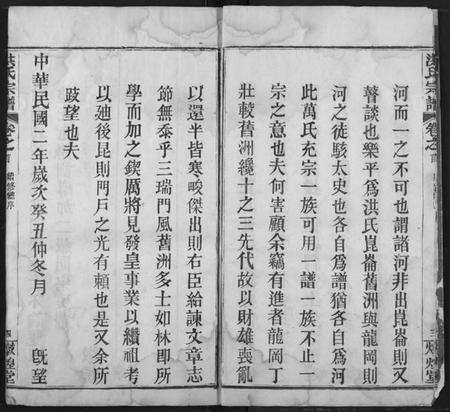 洪氏宗譜
卷之首
三
敦煌堂
河而一之不可也謂諸河非出崑崙則又
瞽談也樂平爲洪氏崑崙舊洲與龍岡則
河之徒駭太史也各自爲譜猶各自爲河
此萬氏充宗一族可用一譜一族不止一
宗之意也夫何害顧余竊有進者龍岡丁
壯較舊洲纔十之三先代故以財雄喪亂
以還半皆寒畯傑出則右臣給諫文章志
節無忝乎三瑞門風舊洲多士如林即所
學而加之鍥厲將見發皇事業以纘祖考
以廸後昆則門戶之光有賴也是又余所
跂望也夫
中華民國二年歲次癸丑仲冬月
旣望
洪氏宗譜
卷之首
四
敦煌堂